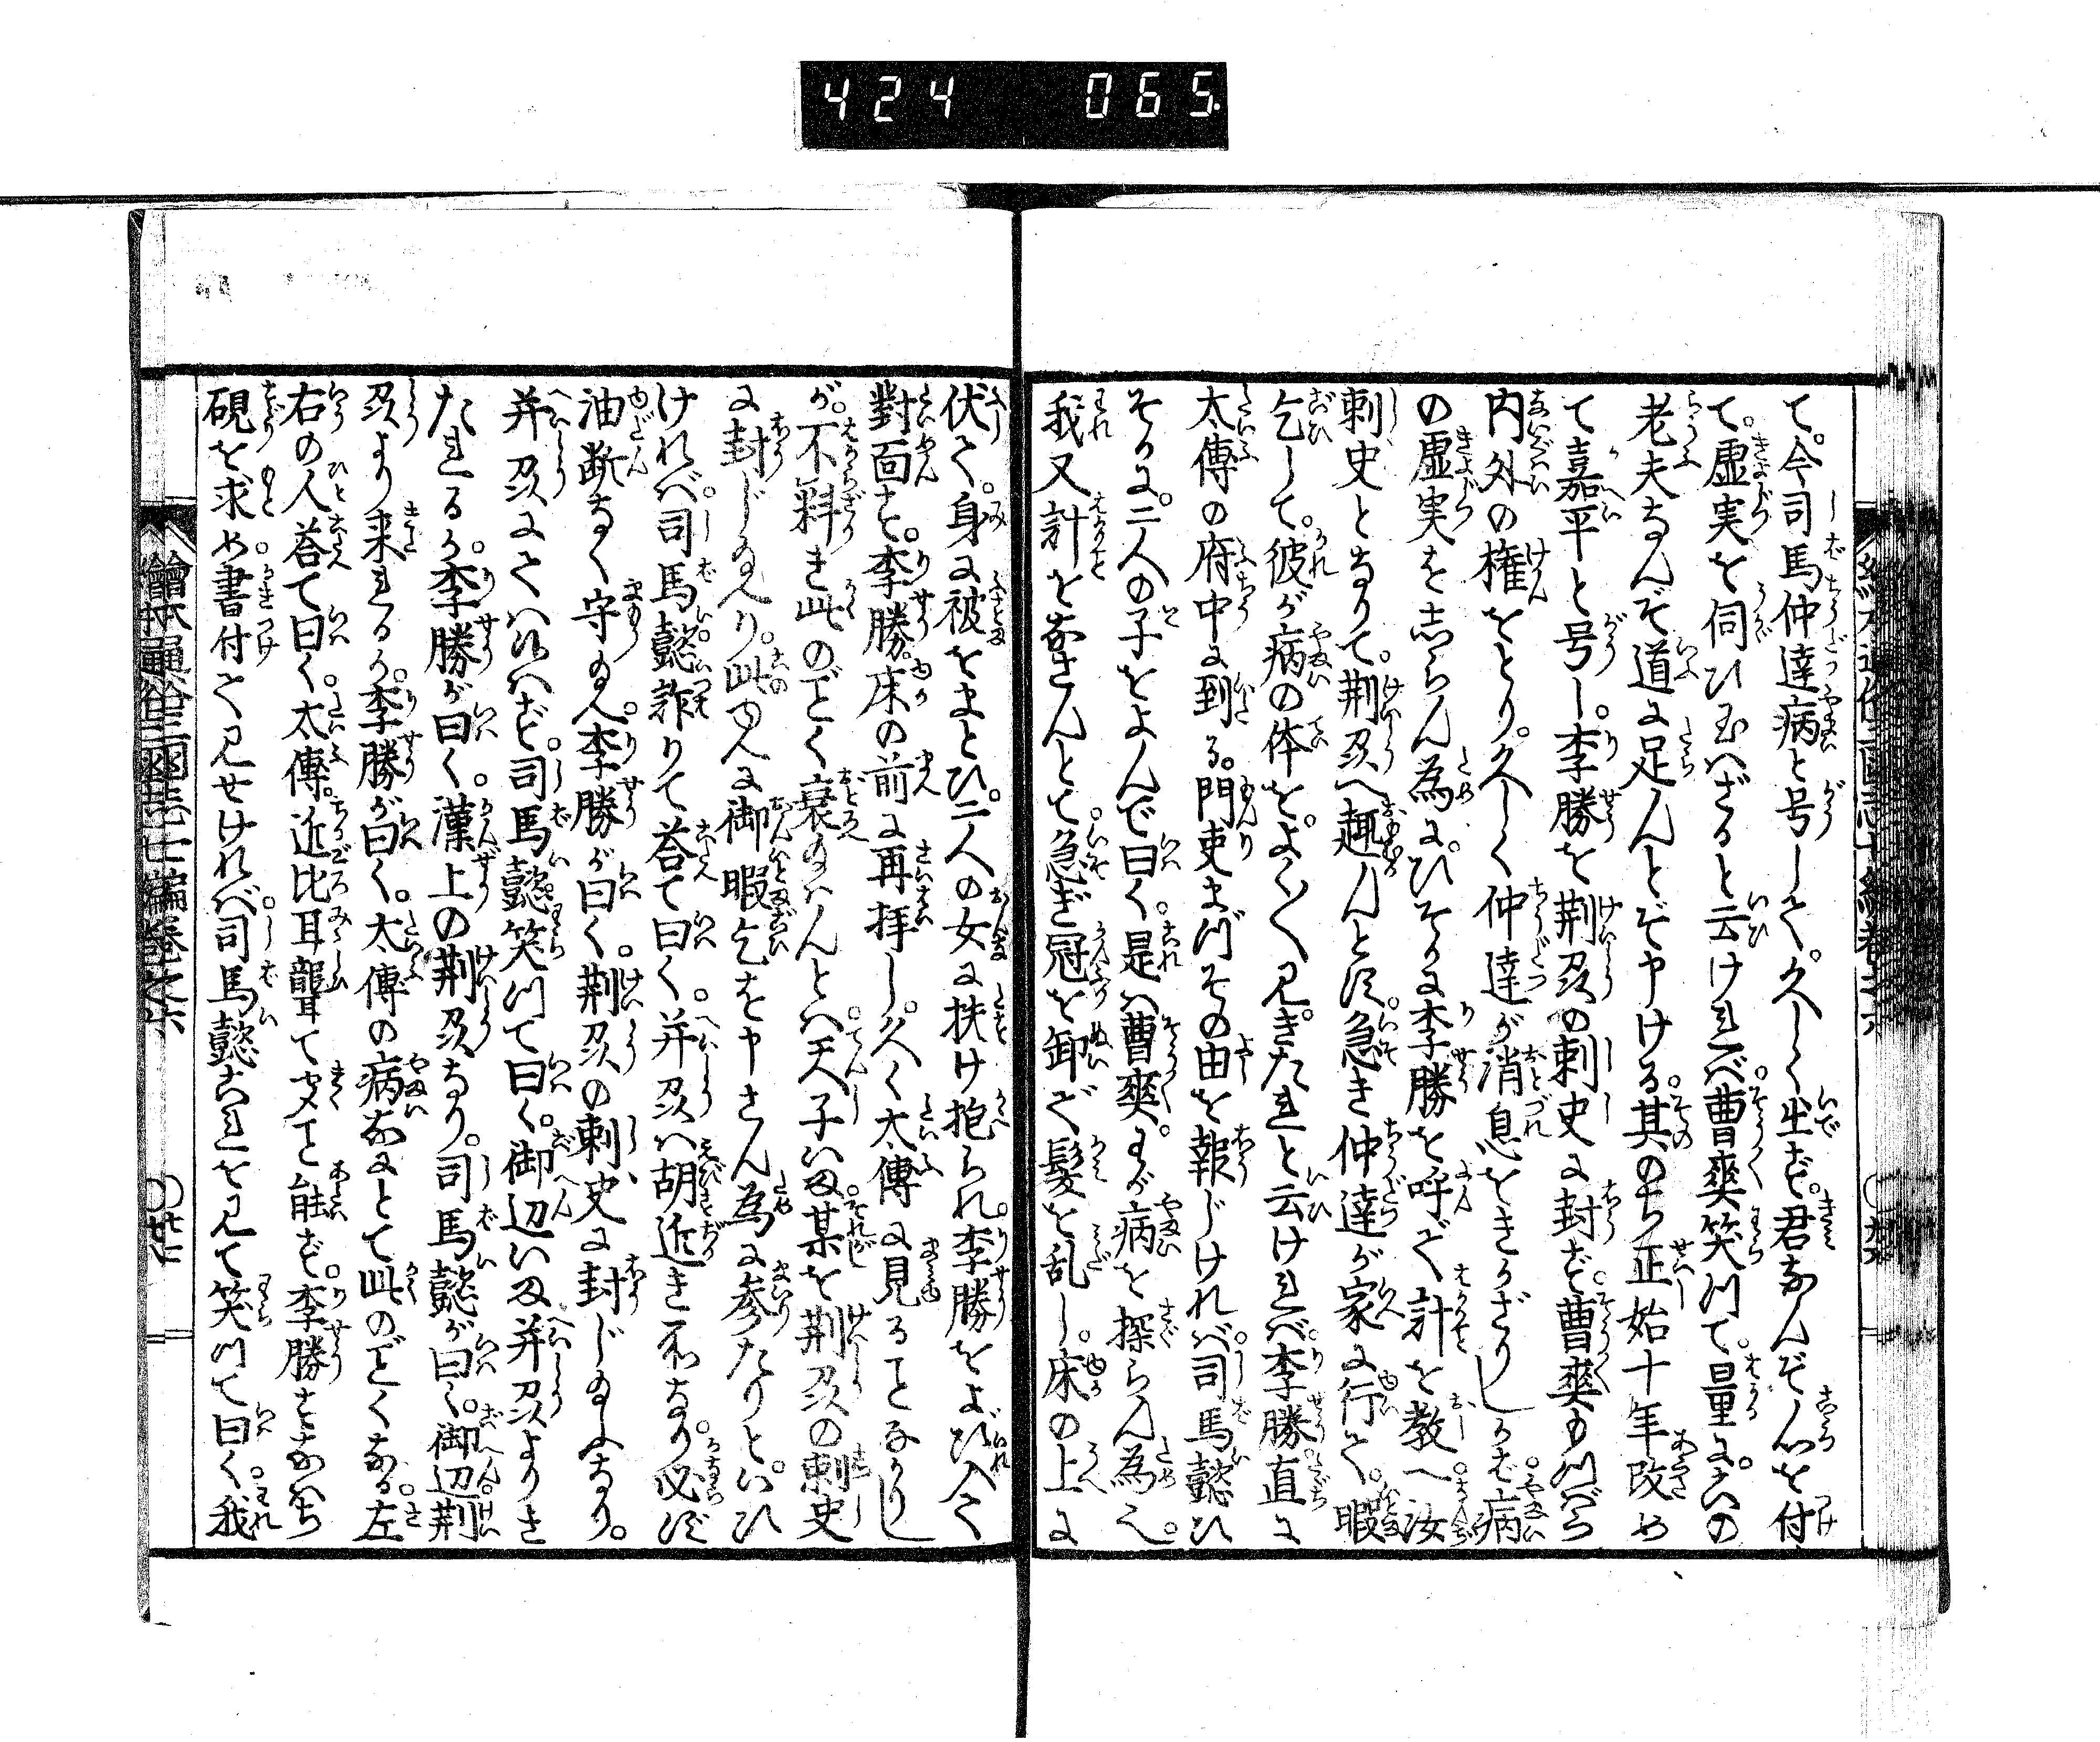 424 065
て。今司馬仲達病と号して。久しく出ず。君なんぞ心を付
て。虚実を伺ひ玉へざると云ければ。曹爽笑つて。量に。かの
老夫なんぞ道に足んとぞ申ける。其のち正始十年改め
て嘉平と号し。李勝を荊州の刺史に封ず。曹爽もつぱら
内外の権をとり。久しく仲達が消息をきかざりしかば。病
の虚実をしらん為に。ひそかに李勝を呼で計を教へ。汝
刺史となりて。荊州へ趣んとす。急き仲達が家に行て。暇
乞して。彼が病の体を。よく〳〵見きたれと云ければ。李勝直に
太傅の府中に到る。門吏まづその由を報じければ。司馬懿ひ
そかに。二人の子をよんで曰く。是は曹爽。わが病を探らん為也。
我又計をなさんとて。急ぎ冠を卸ぎ髪を乱し。床の上に
伏て。身に被をまとひ。二人の女に扶け抱られ。李勝をよび入て
對面す。李勝。床の前に再拝し。久く太傅に見ることなかりし
が。不料き此のごとく衰玉はんとは。天子いま某を荊州の刺史
に封じ玉へり。此ゆへに御暇乞を申さん為に参たりと。いひ
けれバ。司馬懿詐りて答て曰く。并州は胡近き所なり。必ず
油断なく守玉へ。李勝が曰く。荊州の刺史に封じ玉ふなり。
并州にてハ候はず。司馬懿笑つて曰く。御辺いま并州よりき
たれるか。李勝が曰く。漢上の荊州なり。司馬懿が曰く。御辺荊
州より来れるか。李勝が曰く。太傅の病なにとて此のごとくなる。左
右の人答て曰く。太傅。近比耳聾て聞こと能ず。李勝すなはち
硯を求め。書付て見せければ。司馬懿これを見て笑つて曰く。我
繪本通俗三國志七編巻之六
廿七